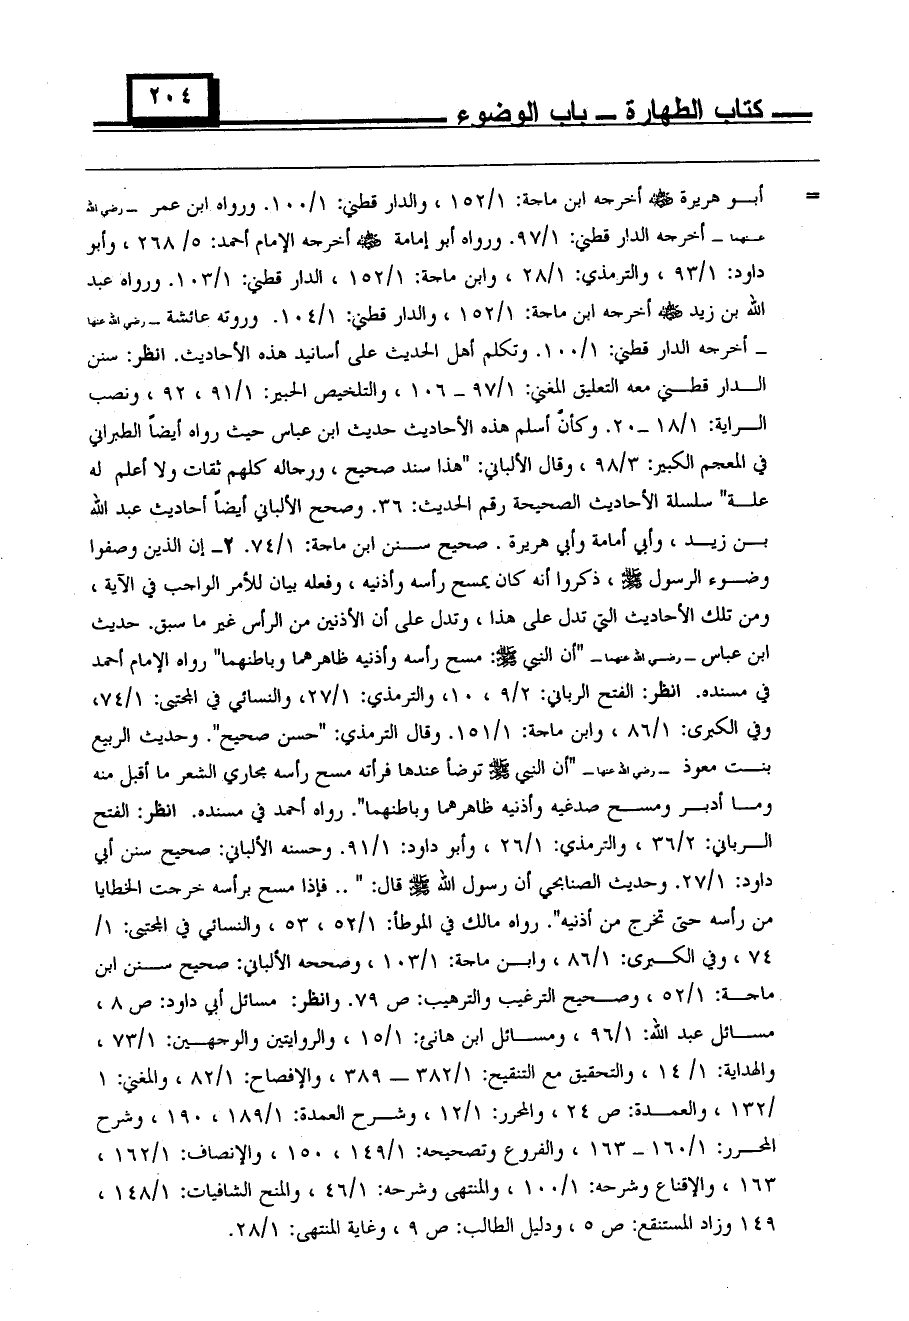 ٢٠٤
كتاب الطهارة ــ باب الوضوء
= أبـو هريرة ﷺ أخرجه ابن ماجة: ١٥٢/١ ، والدار قطني: ١٠٠/١. ورواه ابن عمر ـ رضي الله
عنهما ـ أخرجه الدار قطني: ٩٧/١. ورواه أبو إمامة ﷺ أخرجه الإمام أحمد: ٥/ ٢٦٨ ، وأبو
داود: ٩٣/١ ، والترمذي: ٢٨/١ ، وابن ماجة: ١٥٢/١ ، الدار قطني: ١٠٣/١. ورواه عبد
الله بن زيد ﷺ أخرجه ابن ماجة: ١٥٢/١ ، والدار قطني: ١٠٤/١. وروته عائشة ـ رضي الله عنها
ـ أخرجه الدار قطني: ١٠٠/١. وتكلم أهل الحديث على أسانيد هذه الأحاديث. انظر: سنن
الـدار قطـني معه التعليق المغني: ٩٧/١ ـ ١٠٦ ، والتلخيص الحبير: ٩١/١ ، ٩٢ ، ونصب
الـراية: ١٨/١ ـ٢٠. وكأنّ أسلم هذه الأحاديث حديث ابن عباس حيث رواه أيضاً الطبراني
في المعجم الكبير: ٩٨/٣ ، وقال الألباني: "هذا سند صحيح ، ورجاله كلهم ثقات ولا أعلم له
علـة" سلسلة الأحاديث الصحيحة رقم الحديث: ٣٦. وصحح الألباني أيضاً أحاديث عبد الله
بـن زيـد ، وأبي أمامة وأبي هريرة . صحيح سـنن ابن ماجة: ٧٤/١. ٢ـ إن الذين وصفوا
وضـوء الرسول ﷺ ، ذكروا أنه كان يمسح رأسه وأذنيه ، وفعله بيان للأمر الواجب في الآية ،
ومن تلك الأحاديث التي تدل على هذا ، وتدل على أن الأذنين من الرأس غير ما سبق. حديث
ابن عباس ـ رضي الله عنهما ـ "أن النبي ﷺ: مسح رأسه وأذنيه ظاهرهما وباطنهما" رواه الإمام أحمد
في مسنده. انظر: الفتح الرباني: ٩/٢ ، ١٠، والترمذي: ٢٧/١، والنسائي في المجتبى: ٧٤/١،
وفي الكبرى: ٨٦/١ ، وابن ماجة: ١٥١/١. وقال الترمذي: "حسن صحيح". وحديث الربيع
بنـت معوذ ـ رضي الله عنها ـ "أن النبي ﷺ توضأ عندها فرأته مسح رأسه مجاري الشعر ما أقبل منه
ومـا أدبـر ومسـح صدغيه وأذنيه ظاهرهما وباطنهما". رواه أحمد في مسنده. انظر: الفتح
الـرباني: ٣٦/٢ ، والترمذي: ٢٦/١ ، وأبو داود: ٩١/١. وحسنه الألباني: صحيح سنن أبي
داود: ٢٧/١. وحديث الصنابحي أن رسول الله ﷺ قال: " .. فإذا مسح برأسه خرجت الخطايا
من رأسه حتى تخرج من أذنيه". رواه مالك في الموطأ: ٥٢/١ ، ٥٣ ، والنسائي في المجتبى: ١/
٧٤ ، وفي الكـبرى: ٨٦/١ ، وابـن ماجة: ١٠٣/١ ، وصححه الألباني: صحيح سـنن ابن
ماجـة: ٥٢/١ ، وصـحيح الترغيب والترهيب: ص ٧٩. وانظر: مسائل أبي داود: ص ٨ ،
مسـائل عبد الله: ٩٦/١ ، ومسـائل ابن هانئ: ١٥/١ ، والروايتين والوجهـين: ٧٣/١ ،
والهداية: ١/ ١٤ ، والتحقيق مع التنقيح: ٣٨٢/١ ــ ٣٨٩ ، والإفصاح: ٨٢/١ ، والمغني: ١
/١٣٢ ، والعمـدة: ص ٢٤ ، والمحرر: ١٢/١ ، وشـرح العمدة: ١٨٩/١ ، ١٩٠ ، وشرح
المحـرر: ١٦٠/١ ـ ١٦٣ ، والفروع وتصحيحه: ١٤٩/١ ، ١٥٠ ، والإنصاف: ١٦٢/١ ،
١٦٣ ، والإقناع وشرحه: ١٠٠/١ ، والمنتهى وشرحه: ٤٦/١ ، والمنح الشافيات: ١٤٨/١ ،
١٤٩ وزاد المستنقع: ص ٥ ، ودليل الطالب: ص ٩ ، وغاية المنتهى: ٢٨/١.